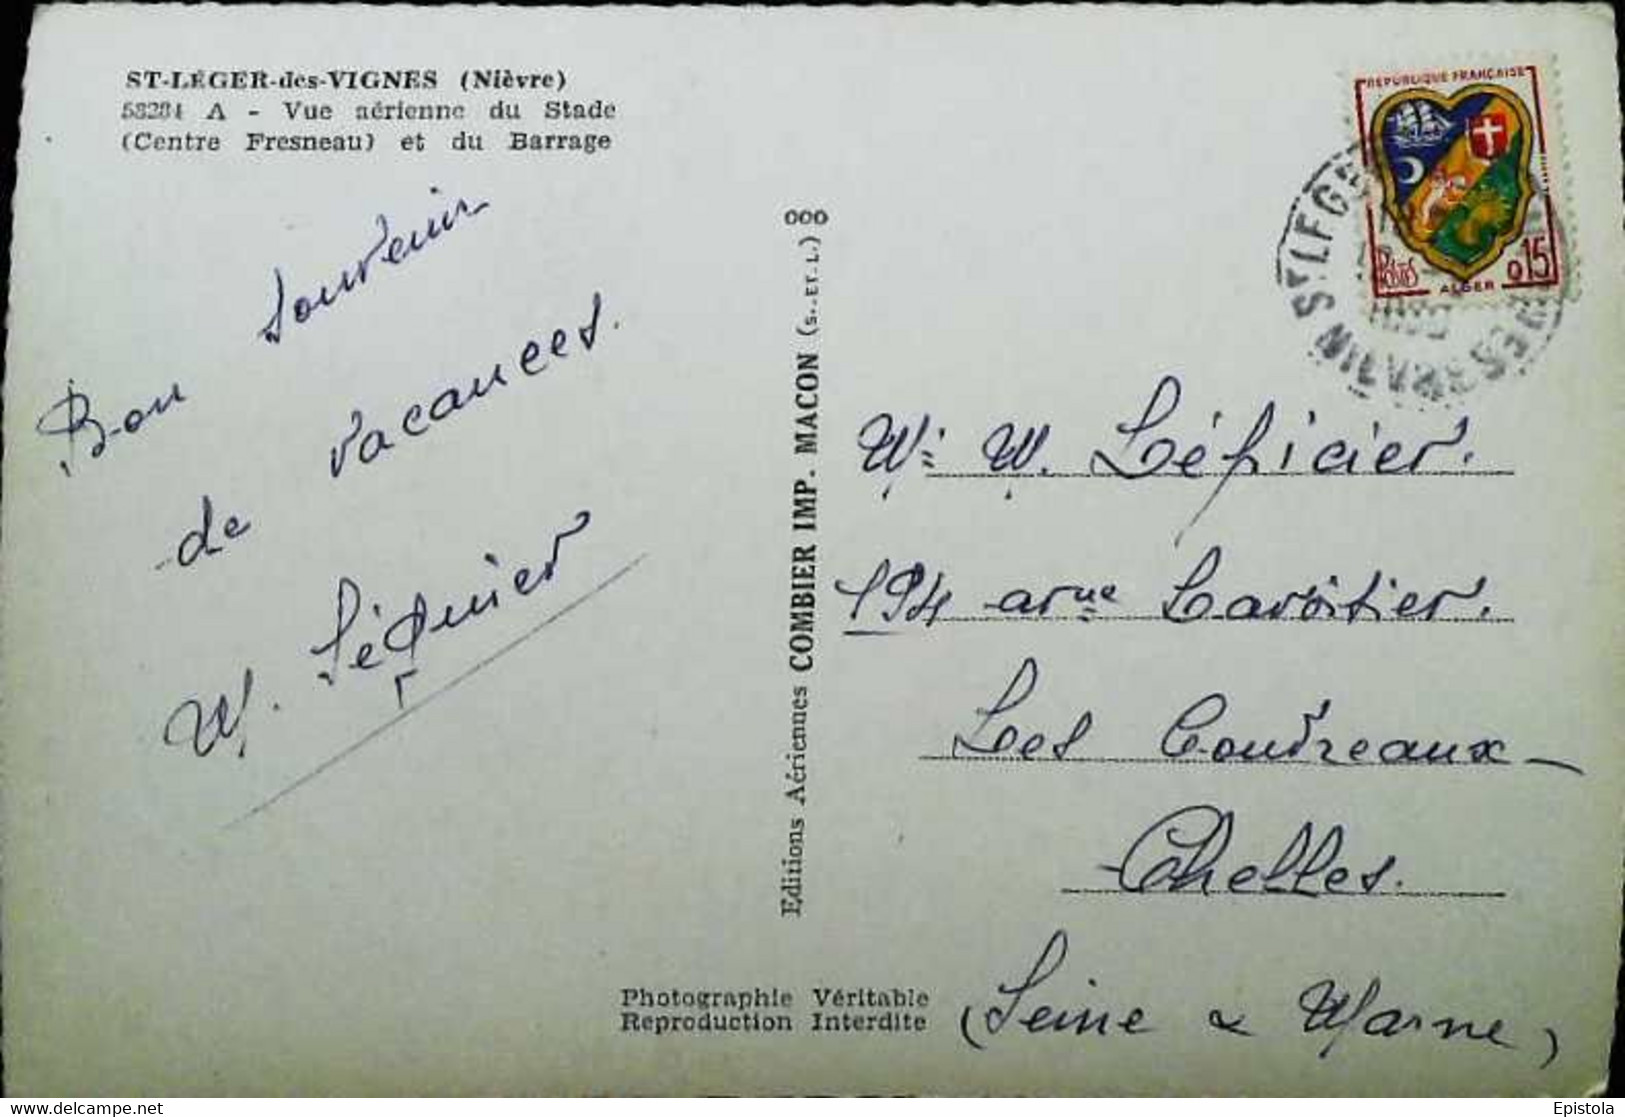 ST-LÉGER-des-VIGNES (Nièvre)
58284 A - Vue aérienne du Stade
(Centre Fresneau) et du Barrage
Bon souvenir
de vacances.
Editions Aériennes COMBIER IMP. MACON (S.-ET-L.) 000
REPUBLIQUE FRANÇAISE
POSTES
0,15
ALGER
ST LEGER
194 avenue Lavoisier.
Les Coudreaux -
Chelles.
(Seine & Marne)
Photographie Véritable
Reproduction Interdite
delcampe.net
Epistola